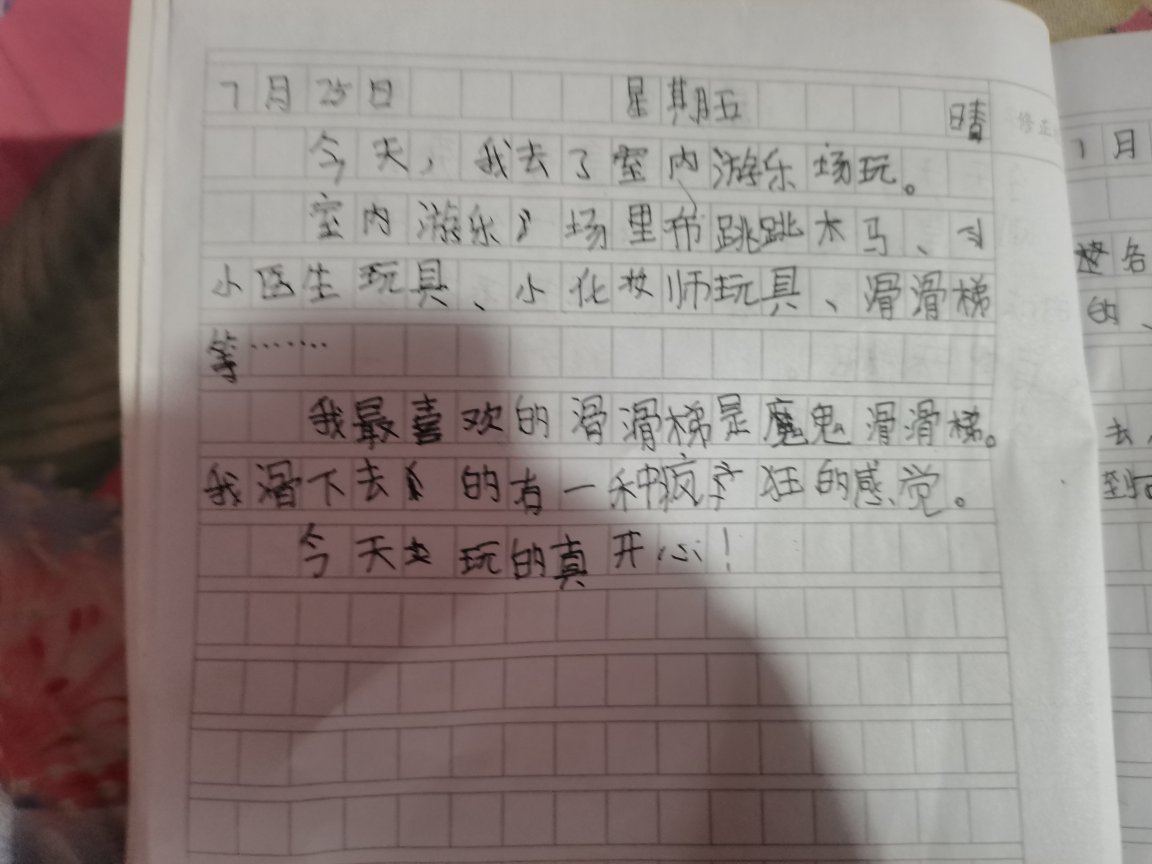 7月25日 星期五 晴
今天,我去了室内游乐场玩。
室内游乐场里有跳跳木马、
小医生玩具、小化妆师玩具、滑滑梯
等……
我最喜欢的滑滑梯是魔鬼滑滑梯。
我滑下去的有一种疯狂的感觉。
今天玩的真开心!
修正
7月
各
的、
去,
到